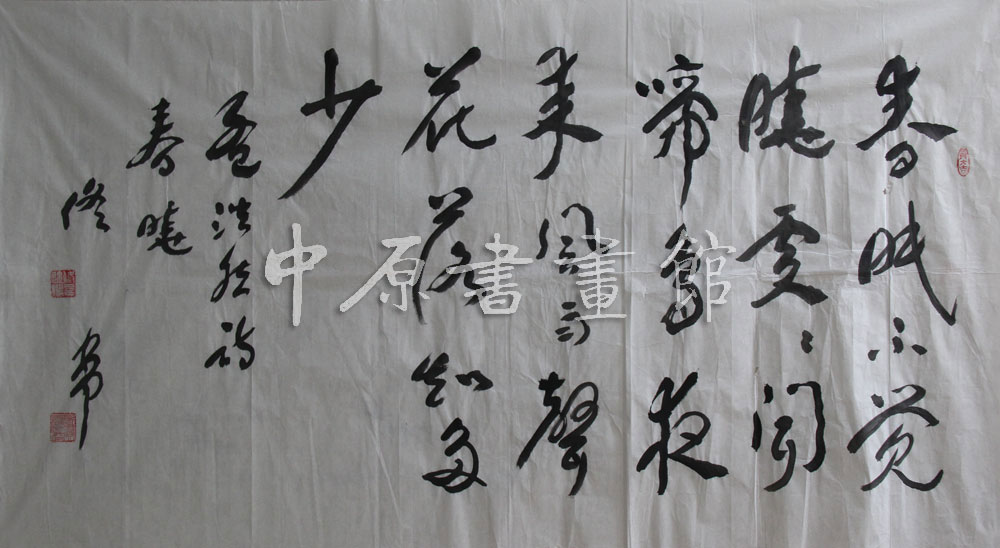 春眠不觉
晓处处闻
啼鸟夜
来风雨聲
花落知多
少
孟浩然诗
春晓
中原書畫館